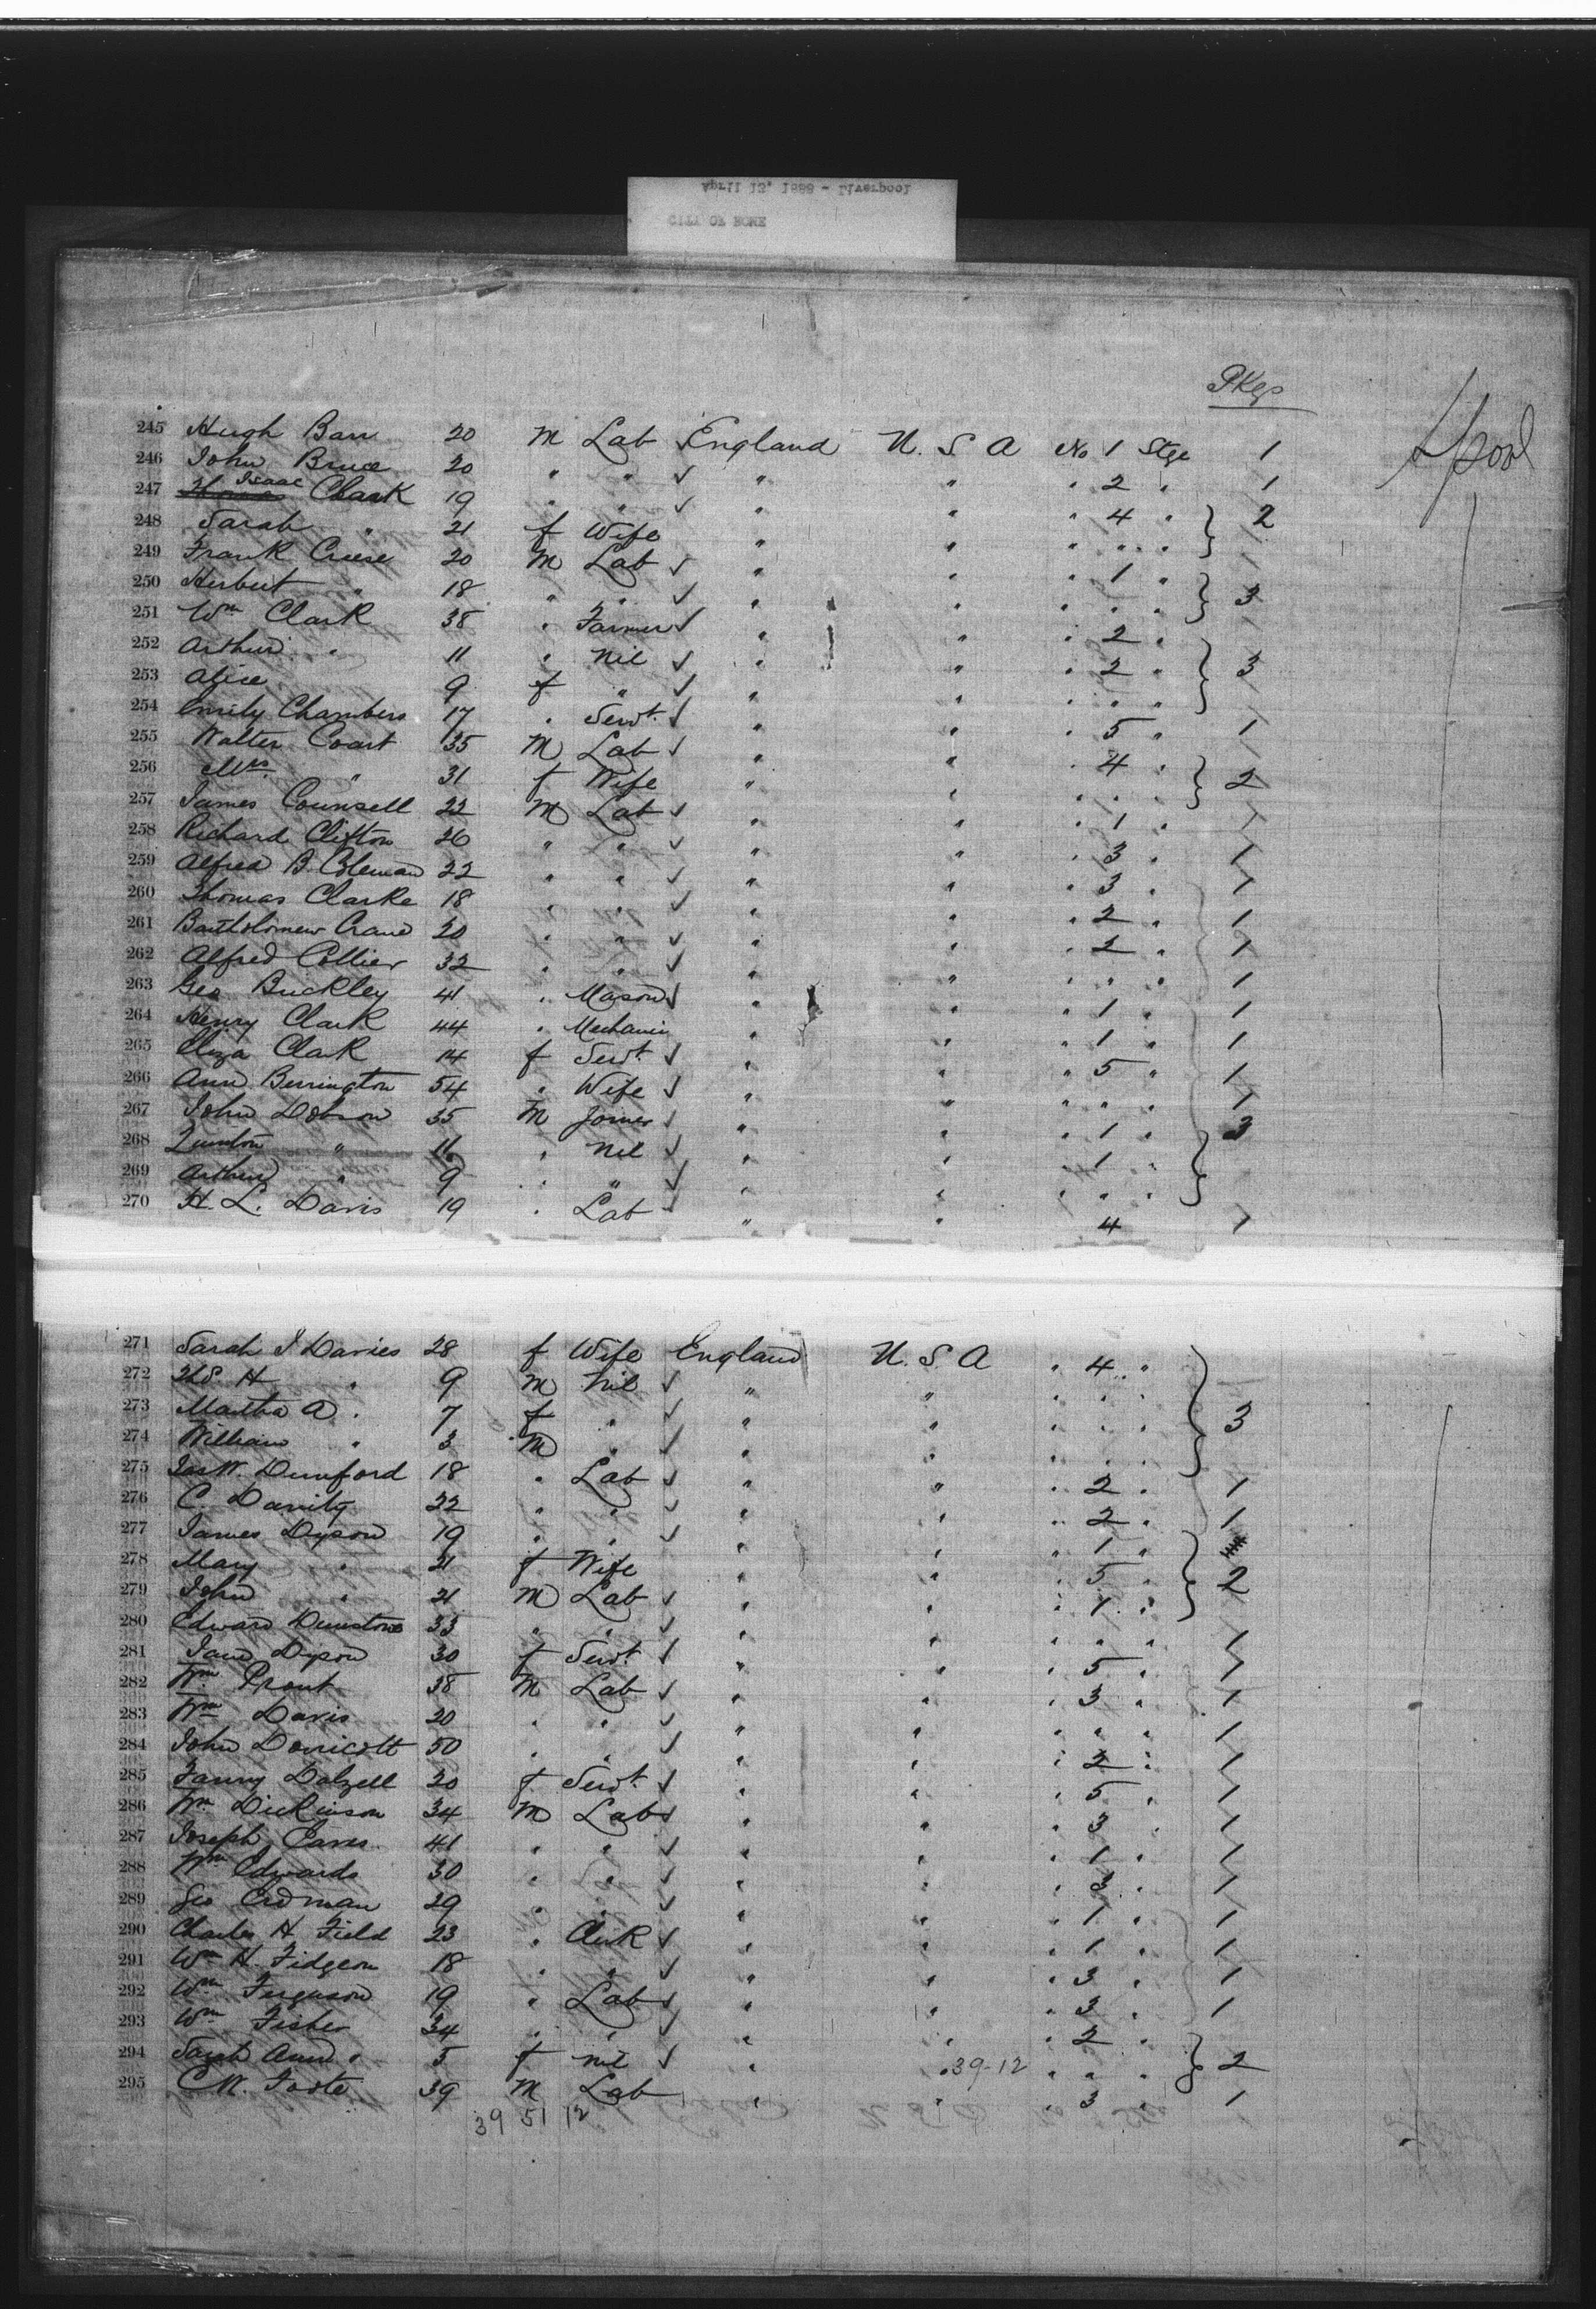 April 12, 1889 - Liverpool
CITY OF ROME
Pkgs
L'pool
245 Hugh Barr 20 M Lab England U. S. A No 1 Stge 1
246 John Bruce 20 " " " " " 2 " 1
247 Isaac Clark 19 " " " " " 4 " 2
248 Sarah " 21 f Wife " " " " "
249 Frank Creese 20 M Lab " " " 1 " 3
250 Herbert " 18 " " " " " " "
251 Wm Clark 38 " Farmer " " " 2 " 3
252 Arthur " 11 " Nil " " " 2 "
253 Alice 9 f " " " " " "
254 Emily Chambers 17 " Servt. " " " 5 " 1
255 Walter Coart 35 M Lab " " " 4 " 2
256 Mrs " 31 f Wife " " " " "
257 James Counsell 22 M Lab " " " 1 " 1
258 Richard Clifton 26 " " " " " 3 " 1
259 Alfred B. Coleman 22 " " " " " 3 " 1
260 Thomas Clarke 18 " " " " " 2 " 1
261 Bartholomew Crane 20 " " " " " 2 " 1
262 Alfred Collier 32 " " " " " " " 1
263 Geo Buckley 41 " Mason " " " 1 " 1
264 Henry Clark 44 " Mechanic " " " 1 " 1
265 Eliza Clark 14 f Servt. " " " 5 " 1
266 Ann Berrington 54 " Wife " " " " " 1
267 John Dobson 35 M Joiner " " " 1 " 3
268 Quinton " 11 " Nil " " " 1 "
269 Arthur " 9 " " " " " " "
270 H. L. Davis 19 " Lab " " 4 1
271 Sarah J Davies 28 f Wife England U. S. A " 4 " 3
272 H " 9 M Nil " " " " "
273 Martha A " 7 f " " " " " "
274 William " 3 M " " " " " "
275 Jas W. Dunford 18 " Lab " " " 2 " 1
276 C. Danity 22 " " " " " 2 " 1
277 James Dyson 19 " " " " " 1 "
278 Mary " 21 f Wife " " " 5 " 2
279 John " 21 M Lab " " " 1 "
280 Edward Dunstone 33 " " " " " " " 1
281 Jane Dixon 30 f Servt " " " 5 " 1
282 Wm Prout 38 M Lab " " " 3 " 1
283 Wm Davis 20 " " " " " " " 1
284 John Dorricott 50 " " " " " 2 " 1
285 Fanny Dalzell 20 f Servt. " " " 5 " 1
286 Wm Dickinson 34 M Lab " " " 3 " 1
287 Joseph Eaves 41 " " " " " 1 " 1
288 Wm Edwards 30 " " " " " 3 " 1
289 Geo Erdman 29 " " " " " 1 " 1
290 Charles H Field 23 " Clerk " " " 1 " 1
291 Wm H. Fidgeon 18 " " " " " 3 " 1
292 Wm Ferguson 19 " Lab " " " 3 " 1
293 Wm Fisher 34 " " " " " 2 " 2
294 Sarah Ann " 5 f nil " " 39-12 " " "
295 C W. Foote 39 M Lab " " " 3 " 1
39 51 12